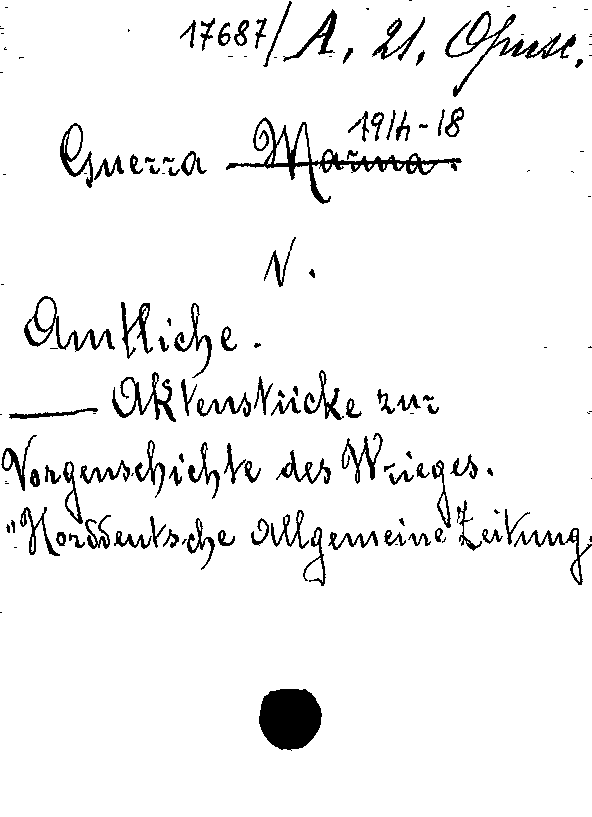 17687/A, 21, Opusc.
1914-18
Guerra Marina.
V.
Amtliche.
—— Aktenstücke zur
Vorgenschichte des Krieges.
"Norddentsche Allgemeine Zeitung.